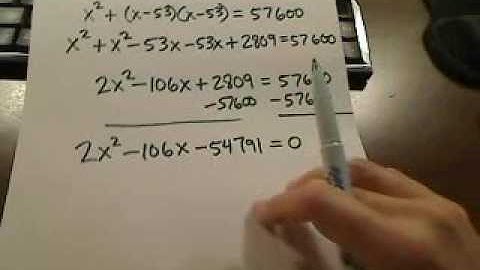 x² + (x-53)(x-53) = 57600
x² + x² - 53x - 53x + 2809 = 57600
2x² - 106x + 2809 =
-57600
2x² - 106x - 54791 = 0